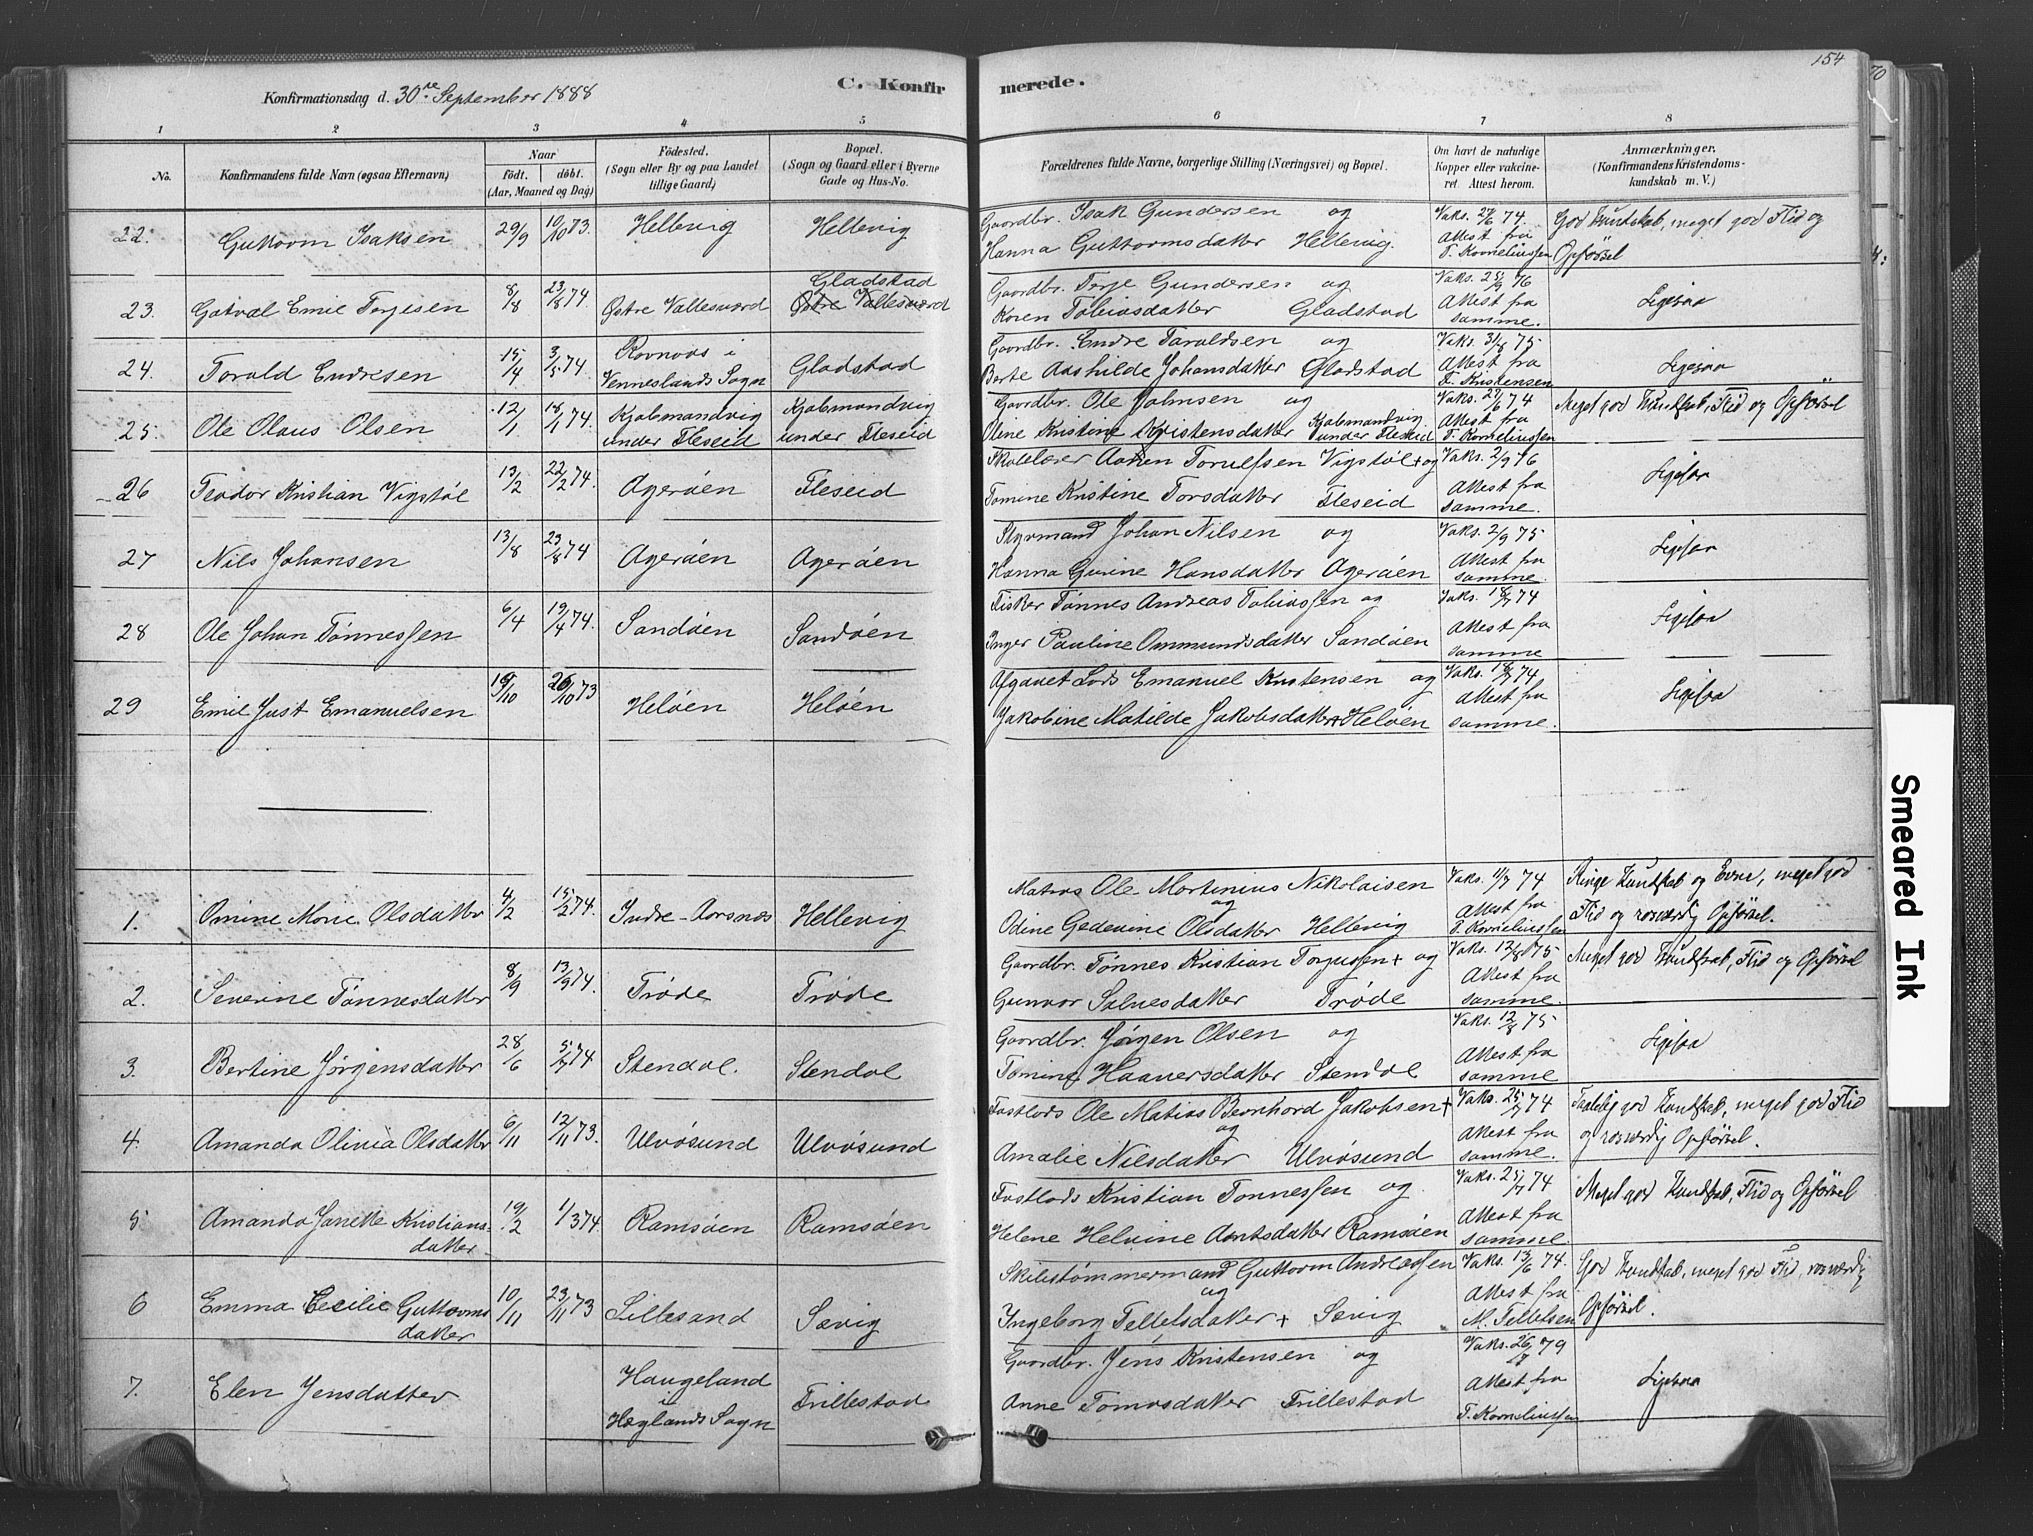 154
70
Konfirmationsdag d. 30te September 1888
C. Konfirmerede.
1 2 3 4 5 6 7 8
No.
Konfirmandens fulde Navn (ogsaa Efternavn)
Naar
födt. döbt.
(Aar, Maaned og Dag)
Födested.
(Sogn eller By og paa Landet tillige Gaard)
Bopæl.
(Sogn og Gaard eller i Byerne Gade og Hus-No.
Forældrenes fulde Navne, borgerlige Stilling (Næringsvei) og Bopæl.
Om havt de naturlige Kopper eller vakcineret Attest herom.
Anmærkninger.
(Konfirmandens Kristendomskundskab m. V.)
22. Guttorm Isaksen 29/9 10/10 73. Hellevig Hellevig Gaardbr. Isak Gundersen og Hanna Guttormsdatter Hellevig. Vaks. 27/6 74. Attest fra T. Korneliussen God Kundskab, meget god Flid og Opførsel
23. Gotval Emil Terjesen 8/8 23/8 74. Østre Vallesværd Gladstad Østre Vallesværd Gaardbr. Terje Gundersen og Karen Tobiasdatter Gladstad Vaks. 25/9 76 Attest fra samme. Ligesaa
24. Torald Endresen 15/4 3/5 74. Rovnaas i Venneslands Sogn Gladstad Gaardbr. Endre Taraldsen og Berte Aashilde Johansdatter Gladstad Vaks. 31/8 75 Attest fra F. Kristensen Ligesaa
25. Ole Olaus Olsen 12/1 18/1 74. Kjøbmandvig under Fleseid Kjøbmandvig under Fleseid Gaardbr. Ole Johnsen og Olene Kristine Kristensdatter Kjøbmandvig under Fleseid Vaks. 27/6 74 Attest fra T. Korneliussen Meget god Kundskab, Flid og Opførsel
26 Teodor Kristian Vigstøl 13/2 22/2 74. Agerøen Fleseid Skolelærer Aanen Torulfsen Vigstøl + og Tomine Kristine Torsdatter Fleseid Vaks. 2/9 76 Attest fra samme. Ligesaa
27 Nils Johansen 13/8 23/8 74 Agerøen Agerøen Styrmand Johan Nilsen og Hanna Gurine Hansdatter Agerøen Vaks. 2/9 75 Attest fra samme. Ligesaa
28 Ole Johan Tønnessen 6/4 19/4 74. Sandøen Sandøen Fisker Tønnes Andreas Tobiassen og Inger Pauline Ommundsdatter Sandøen Vaks. 18/7 74 Attest fra samme Ligesaa
29 Emil Just Emanuelsen /10 26/10 73 Heløen Heløen Afgaaet Lods Emanuel Kristensen og Jakobine Matilde Jakobsdatter + Heløen Vaks. 18/7 74 Attest fra samme. Ligesaa
1. Omine Marie Olsdatter 4/2 15/2 74. Indre-Aarsnes Hellevig Matros Ole Martinius Nikolaisen og Odine Gedevine Olsdatter Hellevig Vaks. 11/7 74 Attest fra T. Korneliussen Ringe Kundskab og Evne, meget god Flid og rosværdig Opførsel.
2. Severine Tønnesdatter 8/9 13/9 74. Trøde Trøde Gaardbr. Tønnes Kristian Torjussen + og Gunvor Salvesdatter Trøde Vaks. 12/8 75 Attest fra samme. Meget god Kundskab, Flid og Opførsel
3. Bertine Jørgensdatter 28/6 5/7 74 Stendal. Stendal Gaardbr. Jørgen Olsen og Tomine Haaversdatter Stendal Vaks. 12/8 75 Attest fra samme Ligesaa
4. Amanda Olivia Olsdatter 6/11 12/11 73. Ulvøsund Ulvøsund Fastlods Ole Matias Bernhard Jakobsen + og Amalie Nilsdatter Ulvøsund Vaks. 25/7 74 Attest fra samme. Taalelig god Kundskab, meget god Flid og rosværdig Opførsel.
5 Amanda Janette Kristiansdatter 19/2 1/3 74. Ramsøen Ramsøen Fastlods Kristian Tønnessen og Helene Helvine Arntsdatter Ramsøen Vaks. 25/7 74 Attest fra samme. Meget god Kundskab, Flid og Opførsel
6 Emma Cecilie Guttormsdatter 10/11 23/11 73 Lillesand Sævig Skibstømmermand Guttorm Andreassen og Ingeborg Tellefsdatter + Sævig Vaks. 13/6 74. Attest fra M. Tellefsen God Kundskab, meget god Flid, rosværdig Opførsel.
7. Elen Jensdatter Haugeland i Hæglands Sogn Trillestad Gaardbr. Jens Kristensen og Anne Tomasdatter Trillestad Vaks. 26/7 79 Attest fra T. Korneliussen Ligesaa
Smeared Ink